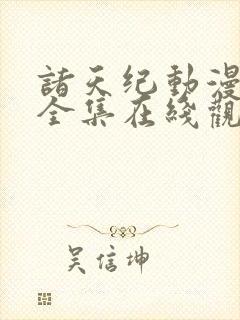 諸天纪動漫
全集在綫觀
吴信坤